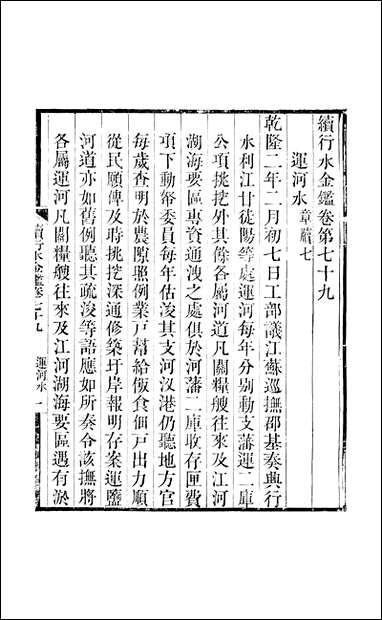 續行水金鑑卷第七十九
運河水章牘七
乾隆二年二月初七日工部議江蘇巡撫邵基奏興行
水利江甘徒陽等處運河每年分別動支藩運二庫
公項挑挖外其餘各屬河道凡關糧艘往來及江河
湖海要區專資通洩之處俱於河藩二庫收存匣費
項下動帑委員每年估浚其支河汊港仍聽地方官
每歲查明於農隙照例業戶幫給飯食佃戶出力順
從民願傳及時挑挖深通修築圩岸報明存案運鹽
河道亦如舊例聽其疏浚等語應如所奏令該撫將
各屬運河凡關糧艘往來及江河湖海要區遇有淤
續行水金鑑卷七十九 運河水 一